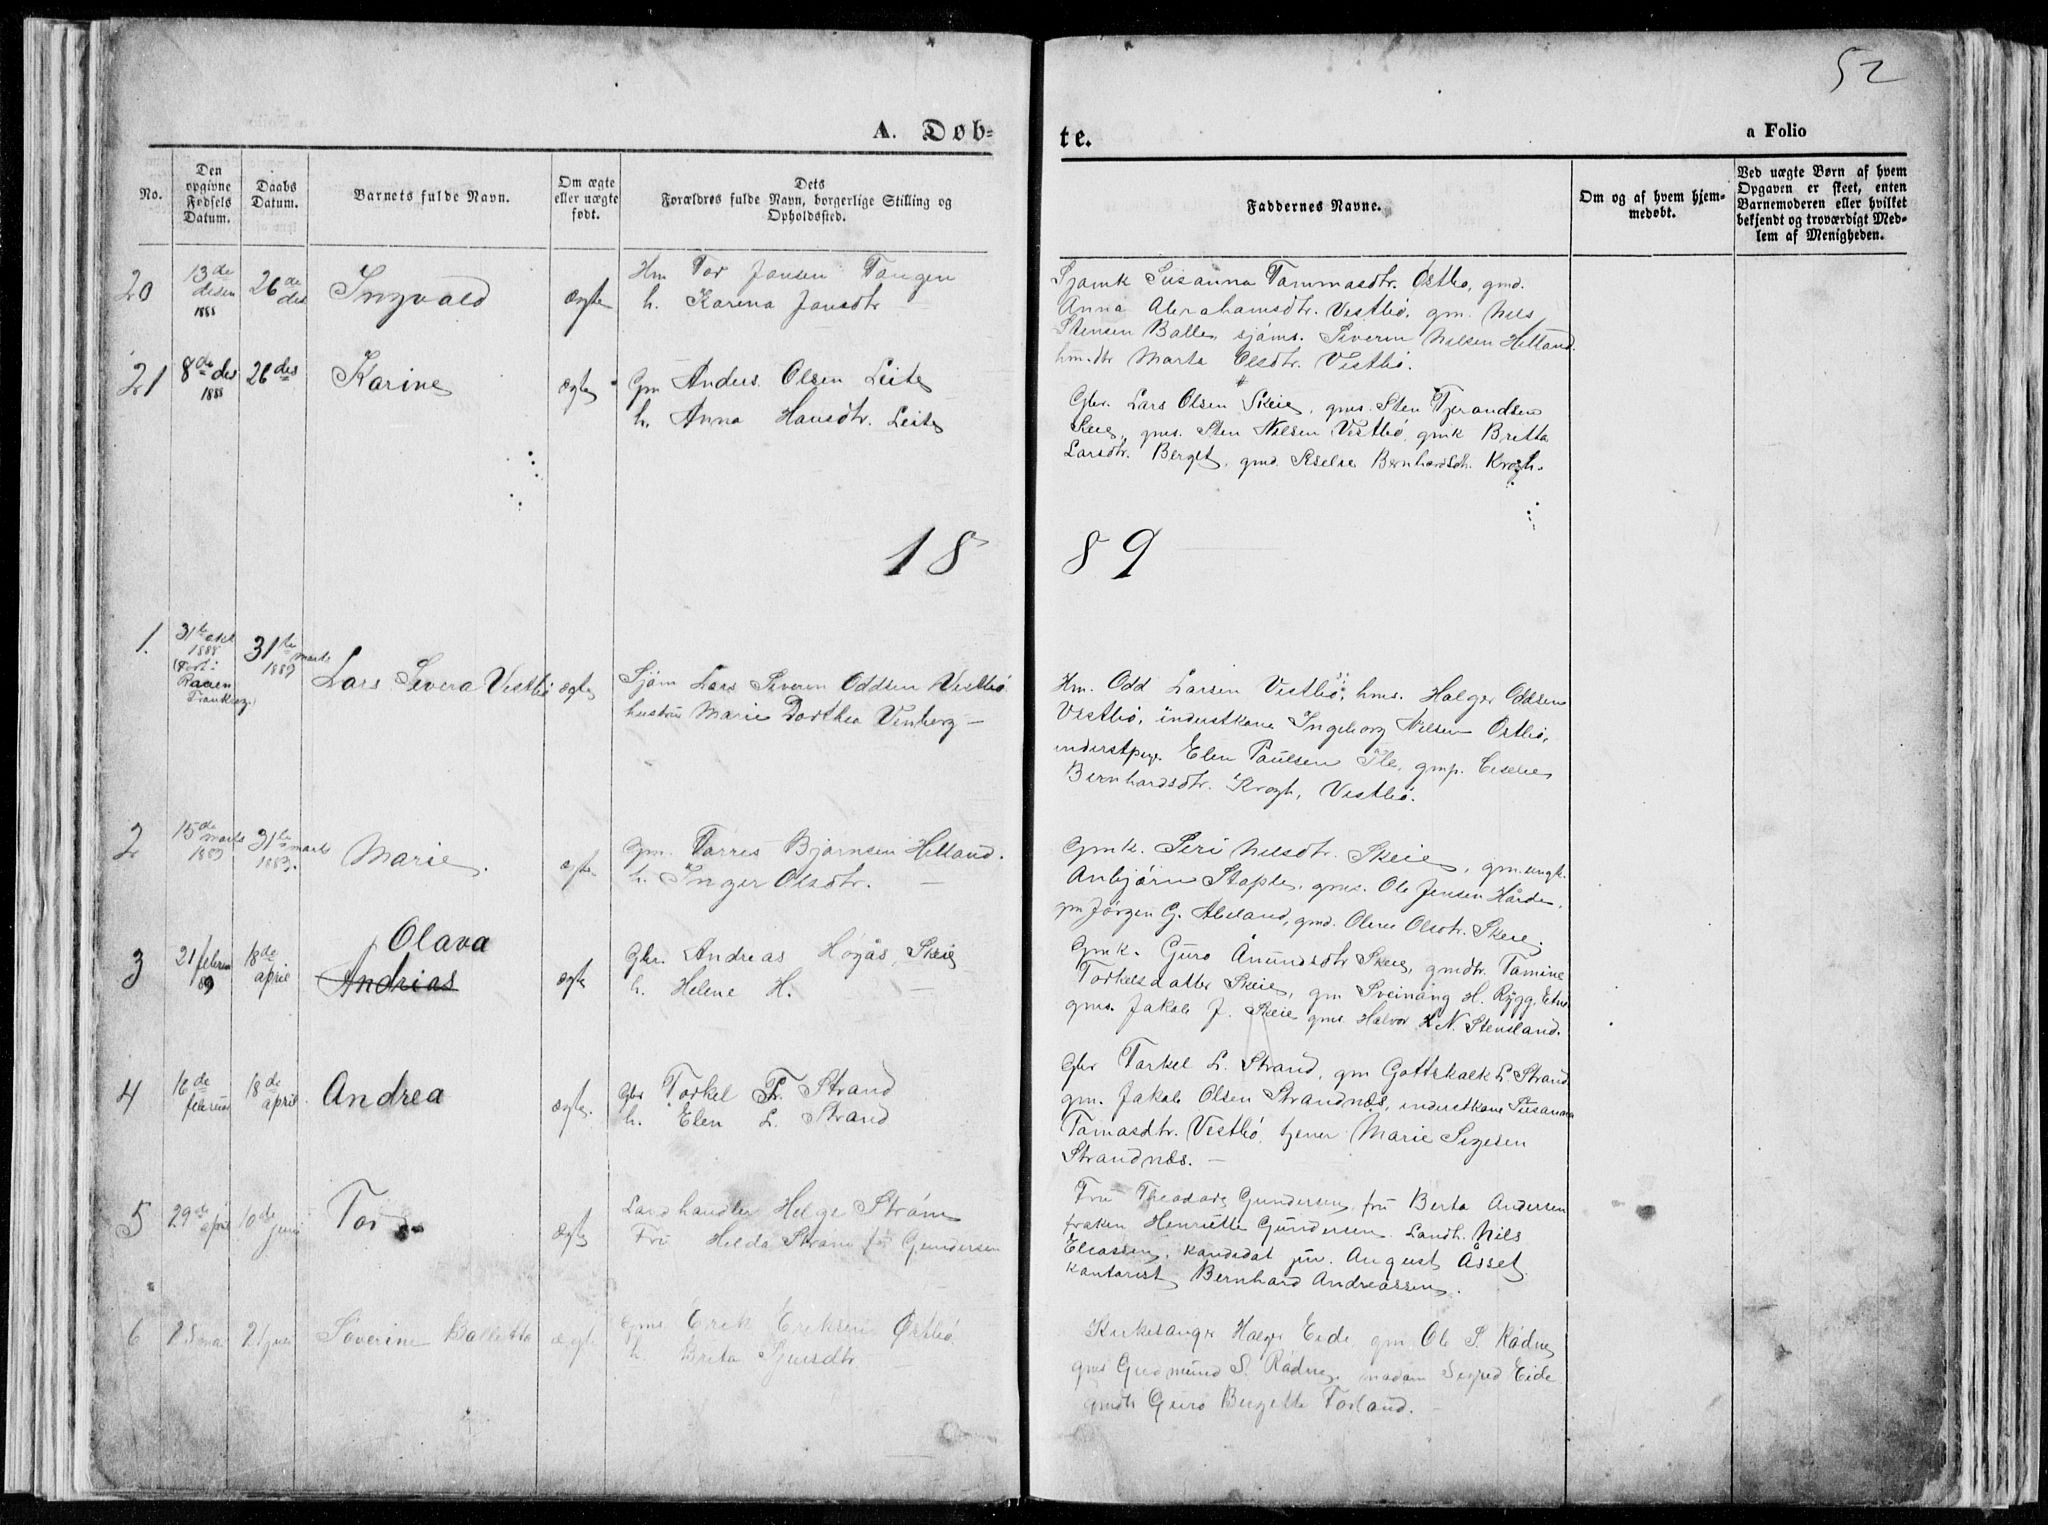 52
A. Døb-
te.
a Folio
No.
Den
opgivne
Fødsels
Datum.
Daabs
Datum.
Barnets fulde Navn.
Om ægte
eller uægte
født.
Dets
Forældres fulde Navn, borgerlige Stilling og
Opholdssted.
Faddernes Navne.
Om og af hvem hjem-
medøbt.
Ved uægte Børn af hvem
Opgaven er skeet, enten
Barnemoderen eller hvilket
bekjendt og troværdigt Med-
lem af Menigheden.
20
13de
1888
26de
des
Ingvald
ægte
Hm Tor Jansen Tangen
h. Karina Jansdtr
Susanna Tammasdtr. Østbø, gmd.
Anna Abrahamsdtr. Vestbø, gm. Nils
Stensen Balle, sjøms. Severin Nilsen Hetland.
hmdtr Marta Olsdtr. Vestbø.
21
8de des
1888
26 des
Karine
ægte
Gm Anders Olsen Leite
h. Anna Hansdtr. Leite
Gbr. Lars Olsen Skeie, gms. Sten Tjerandsen
Skeie, gms. Sten Nilsen Vestbø, gmk Britta
Larsdtr. Berget, gmd. Bernhardsdtr. Krogh.
18
89
1.
31te
1888
31te marts
1889
Lars Severa Vestbø
ægte
Sjøm Lars Severin Oddsen Vestbø
hustru Marie Dorthea Vinberg
Hm. Odd Larsen Vestbø, hms. Holger Oddsen
Vestbø, inderstkone Ingeborg Nilsen Østbø,
inderstpige Elen Paulsen gmp.
Bernhardsdtr. Krogh, Vestbø.
2
15de
marts
1889
31te marts
Marie.
ægte
Gm. Torres Bjørnsen Hetland.
h. Inger Olsdtr.
Gmk. Siri Nilsdtr. Skeie, gm.ungk.
Anbjørn Staple, gms. Ole Jensen
gm Jørgen G. Aleland, gmd. Olene Olsdtr. Skeie.
3
21/
89
18de
april
Olava
Andrias
ægte
Gbr. Andreas Høgås, Skeie
h. Helene H.
Gmk. Guro Anundsdtr Skeie, gmdtr. Tamine
Torkelsdatter Skeie, gm Sveinung H. Rygg, Etne
gms. Jakob J. Skeie gms. Halvor N. Stensland.
4
16de
februar
18de
april
Andrea
ægte
Gbr Torkel Tr. Strand
h. Elen L. Strand
Gbr Tarkel L. Strand, gm Gottskalk L. Strand
gm. Jakob Olsen Strandnæs, inderstkone Susanna
Tamasdtr. Vestbø, tjener Marie
Strandnæs.
5
29de
april
10de
juni
Tor
ægte
Landhandler Helge Strøm
Fru Helda Strøm før Gundersen
Fru Theodora Gundersen, fru Berta Andersen
frøken Henriette Gundersen. Landh. Nils
Eliassen, kandidat jur. August Åsset
kantorist Bernhard Andreassen.
6
Severine Balletta
ægte
gms Erik Eriksen Østbø
h. Brita Sjursdtr
Kirkesanger Holger Eide gm Ole S. Rådne
gms Gudmund S. Rådne, madam Eide
gmdtr Guro Birgitte Torland.